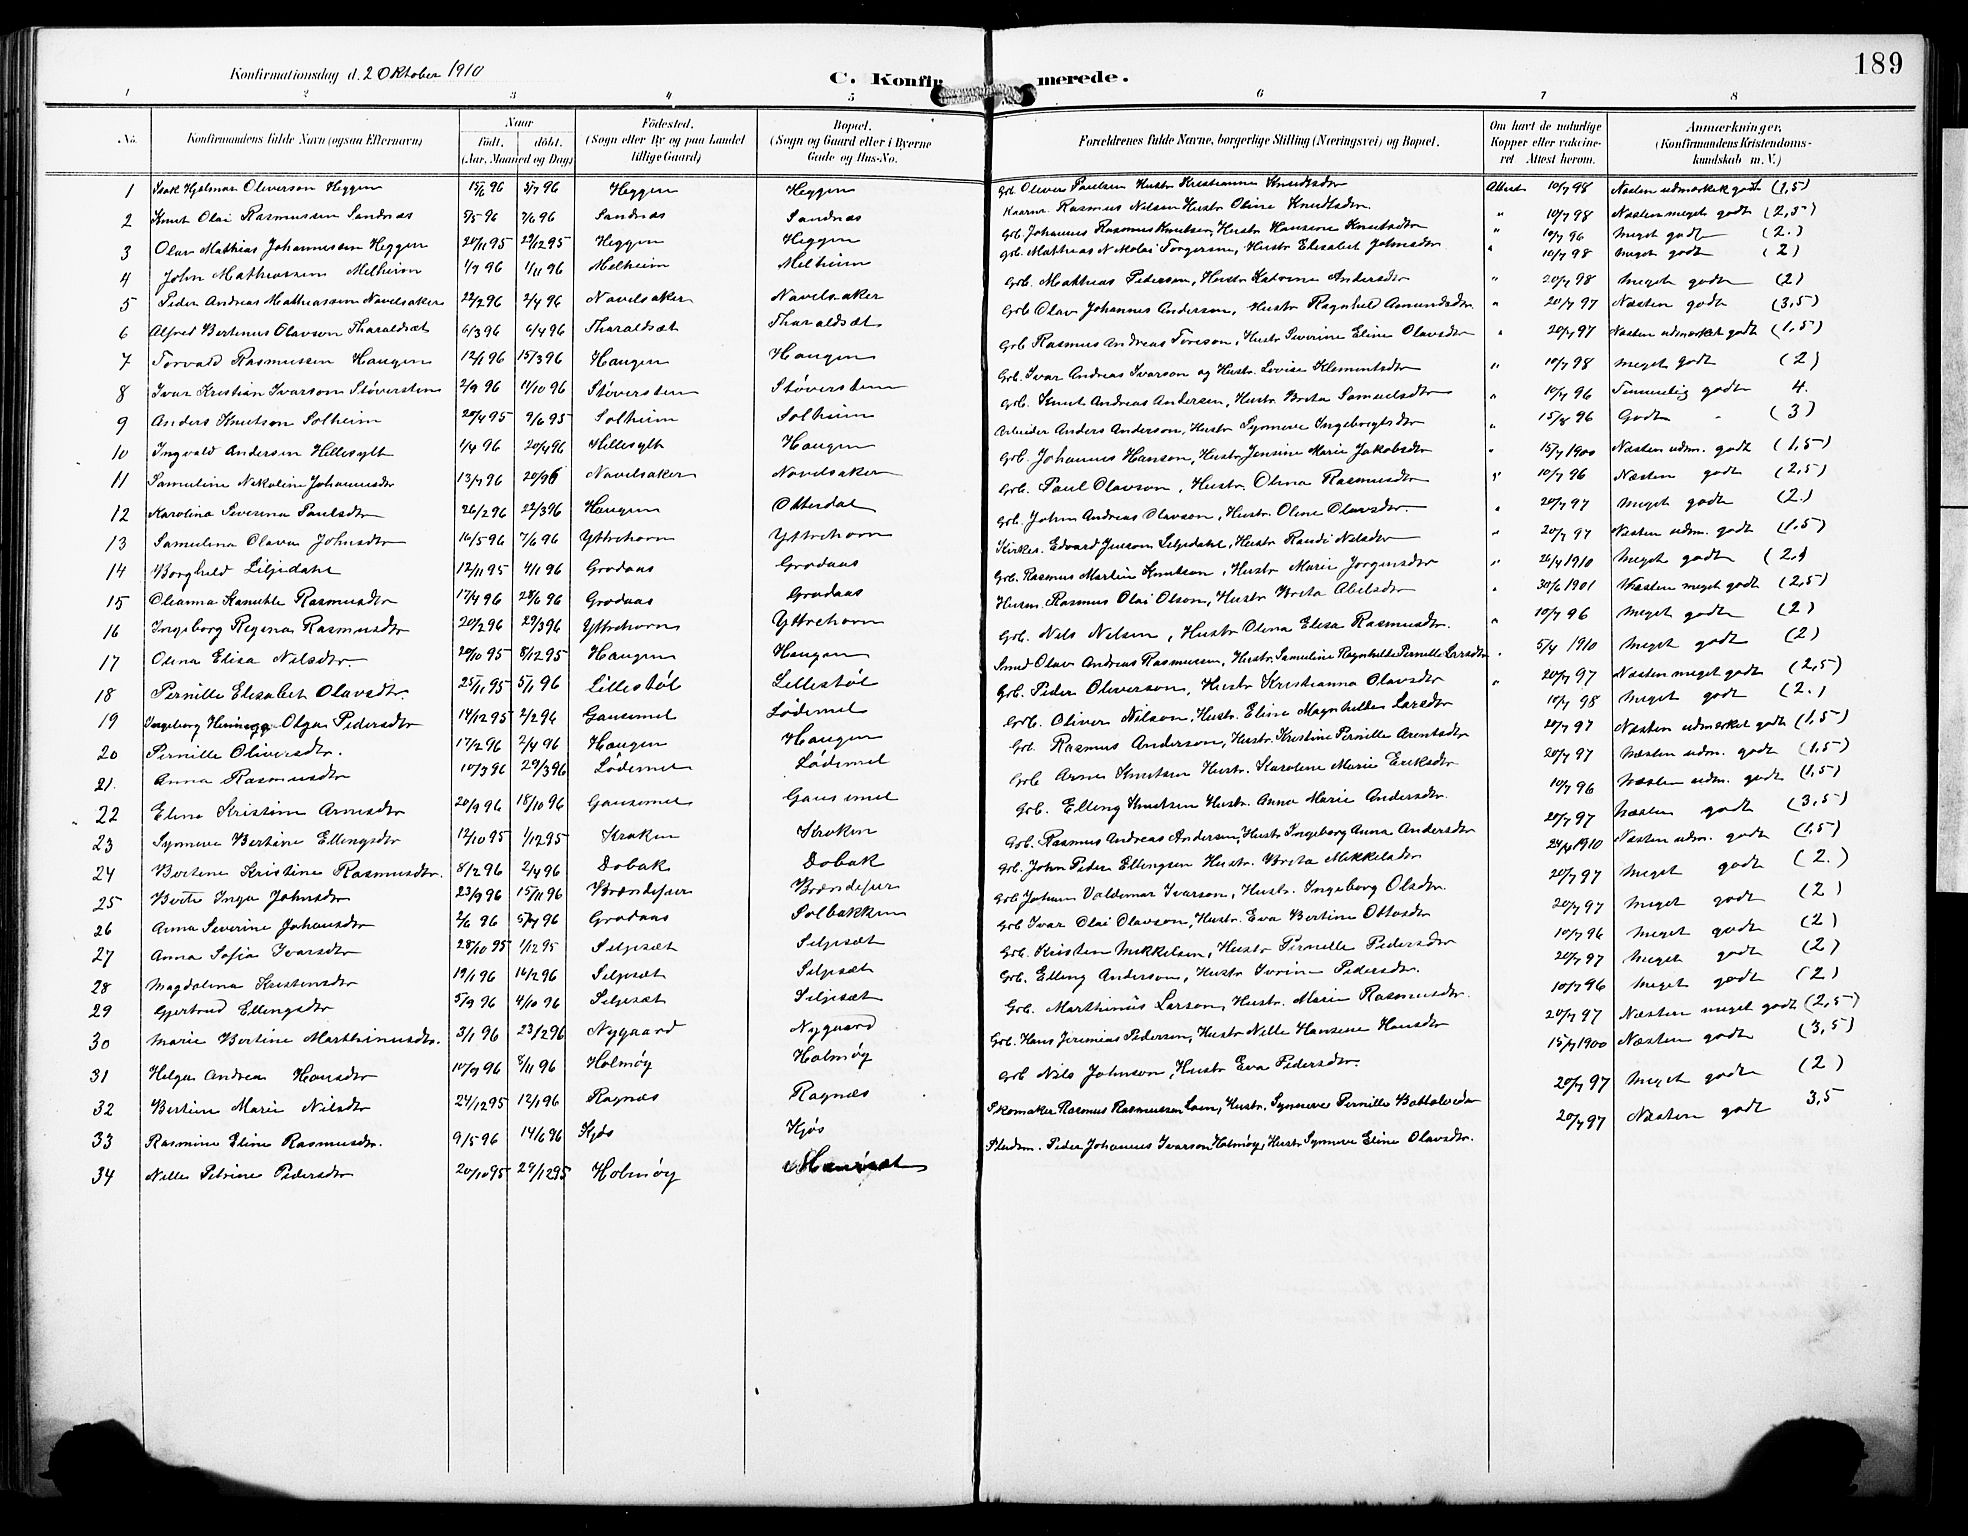 Konfirmationsdag d. 2 Oktober 1910
C. Konfirmerede.
189
1 2 3 4 5 6 7 8
No. Konfirmandens fulde Navn (ogsaa Efternavn) Naar Födt, döbt. (Aar, Maaned og Dag) Födested. (Sogn eller By og paa Landet tillige Gaard) Bopæl. (Sogn og Gaard eller i Byerne Gade og Hus-No. Forældrenes fulde Navne, borgerlige Stilling (Næringsvei) og Bopæl. Om havt de naturlige Kopper eller vakcineret Attest herom. Anmærkninger. (Konfirmandens Kristendomskundskab m. V.)
1 Isak Hjalmar Oliverson Heggen 15/6 96 5/7 96 Heggen Heggen Grb. Oliver Paulsen Hustr. Kristianne Knudsdtr Attest 10/7 98 Næsten udmerket godt (1,5)
2 Knut Olai Rasmussen Sandnæs 7/5 96 7/6 96 Sandnæs Sandnæs Kaarm. Rasmus Nilsen Hustr. Oline Knudtsdtr. " 10/7 98 Næsten meget godt (2,5)
3 Olav Mathias Johannessen Heggen 20/11 95 29/12 95 Heggen Heggen Grb. Johannes Rasmus Knutsen, Hustr. Hansine Knutsdtr " 10/7 96 Meget godt (2.)
4 John Mathiassen Melheim 1/9 96 1/11 96 Melheim Melheim Grb. Mathias Nikolai Torgersen, Hustr. Elisabet Johnsdtr " 10/7 98 Meget godt (2)
5 Peder Andreas Mathiassen Navelsaker 22/2 96 2/4 96 Navelsaker Navelsaker Grb. Mathias Pederson, Hustr. Katrine Andersdtr " 20/7 98 Meget godt (2)
6 Alfred Bertinus Olavson Tharaldsæt 6/3 96 6/4 96 Tharaldsæt Tharaldsæt Grb Olav Johannes Anderson, Hustr Ragnhild Amundsdtr " 20/7 97 Næsten godt (3,5)
7 Torvald Rasmussen Haugen 12/1 96 15/3 96 Haugen Haugen Grb Rasmus Andreas Toreson, Hustr Severine Eline Olavsdtr " 20/7 97 Næsten udmerket godt (1,5)
8 Ivar Kristian Ivarson Støversten 2/9 96 11/10 96 Støversten Støversten Grb. Ivar Andreas Ivarson og Hustr. Lovise Klementsdtr " 10/7 98 Meget godt (2)
9 Anders Knutson Solheim 20/4 95 9/6 95 Solheim Solheim Grb. Knut Andreas Andersen, Hustr. Brita Samuelsdtr " 10/7 96 Temmelig godt 4.
10 Ingvald Andersen Hillesylt 1/4 96 20/4 96 Hillesylt Haugen Arbeider Anders Anderson, Hustr Synneve Ingebrigtsdtr " 15/8 96 Godt - (3)
11 Samuline Nikoline Johannesdtr 13/7 96 20/96 Navelsaker Navelsaker Grb. Johannes Hanson, Hustr Jensine Marie Jakobsdtr " 15/7 1900 Næsten udm. godt (1,5)
12 Karolina Severina Paulsdtr 26/2 96 22/3 96 Haugen Otterdal Grb. Paul Olavson, Hustr. Olina Rasmusdtr " 10/7 96 Næsten godt (2,5)
13 Samulina Olava Johnsdtr 16/5 96 7/6 96 Yttrehorn Yttrehorn Grb. John Andreas Olavson, Hustr. Oline Olavsdtr. " 20/7 97 Meget godt (2.)
14 Borghild Liljedahl 12/11 95 4/1 96 Grodaas Grodaas Kirkes. Edvard Jenson Liljedahl, Hustr Randi Nilsdtr " 20/7 97 Næsten udm. godt (1,5)
15 Oleanna Kamilla Rasmusdtr 17/4 96 28/6 96 Grodaas Grodaas Grb. Rasmus Martin Knutson, Hustr Marie Jørgensdtr " 24/4 1910 Meget godt (2.)
16 Ingeborg Regina Rasmusdtr 20/2 96 29/3 96 Yttrehorn Yttrehorn Husm. Rasmus Olai Olson, Hustr Brita Abelsdtr " 30/6 1901 Næsten meget godt (2,5)
17 Olina Elisa Nilsdtr. 20/10 95 8/12 95 Haugen Haugen Grb. Nils Nilsen, Hustr Olina Elisa Rasmusdtr. " 10/7 96 Meget godt (2)
18 Pernille Elisabet Olavsdtr. 25/11 95 5/1 96 Lillestøl Lillestøl Smed Olav Andreas Rasmussen, Hustr. Samuline Ragnhilde Pernille Larsdtr " 5/4 1910 Meget godt (2)
19 Ingeborg Olga Pedersdtr 14/12 95 2/2 96 Gausemel Lødemel Grb. Peder Oliverson, Hustr Kristianna Olavsdtr " 20/7 97 Næsten meget godt (2,5)
20 Pernille Oliversdtr. 17/2 96 2/4 96 Haugen Haugen Grb. Oliver Nilson, Hustr. Eline Magnhilde Larsdtr 10/7 98 Meget godt (2.)
21. Anna Rasmusdtr 10/3 96 29/3 96 Lødemel Lødemel Grb. Rasmus Anderson, Hustr. Kristine Pernille Arentsdtr 20/7 97 Næsten udmerket godt (1,5)
22 Elina Kristine Arnesdtr 20/9 96 18/10 96 Gausemel Gausemel Grb Arne Knutsen Hustr. Karoline Marie Eriksdtr 20/7 97 Næsten udm. godt (1,5)
23 Synneve Bertine Ellingsdtr 12/10 95 1/12 95 Kroken Kroken Grb. Elling Knutsen Hustr. Anna Marie Andersdtr. 10/7 96 Næsten udm. godt (1,5)
24 Bertine Kristine Rasmusdtr. 8/2 96 2/4 96 Dobak Dobak Grb. Rasmus Andreas Andersen, Hustr Ingeborg Anna Andersdtr 20/7 97 Næsten godt (3,5)
25 Berte Inga Johnsdtr 23/9 96 15/11 96 Brændefur Brændefur Grb. John Peder Ellingsen Hustr. Brita Mikkelsdtr 24/4 1910 Næsten udm. godt (1,5)
26 Anna Severine Johansdtr 2/6 96 5/7 96 Grodaas Solbakken Grb Johan Valdemar Ivarson, Hustr. Ingeborg Olsdtr. 20/7 97 Meget godt (2.)
27 Anna Sofia Ivarsdtr 28/10 95 1/12 95 Siljesæt Siljesæt Grb Ivar Olai Olavson, Hustr. Eva Bertine Ottosdtr 20/7 97 Meget godt (2)
28 Magdalena Kristensdtr 19/1 96 16/2 96 Siljesæt Siljesæt Grb. Kristen Mikkelsen, Hustr Pernille Pedersdtr 10/7 96 Meget godt (2)
29 Gjertrud Ellingsdtr 5/9 96 4/10 96 Siljesæt Siljesæt Grb. Elling Anderson, Hustr Ivrine Pedersdtr. 20/7 97 Meget godt (2)
30 Marie Bertine Marthinusdtr. 3/1 96 23/2 96 Nygaard Nygaard Grb. Marthinus Larson, Hustr. Marie Rasmusdtr. 10/7 96 Meget godt (2)
31 Helga Andrea Hansdtr 10/9 96 8/11 96 Holmøy Holmøy Grb. Hans Jeremias Pederson, Hustr Nille Hansine Hansdtr 20/7 97 Næsten meget godt (2,5)
32 Bertine Marie Nilsdtr 24/12 95 12/1 96 Ragnæs Ragnæs Grb Nils Johnson, Hustr Eva Pedersdtr. 15/7 1900 Næsten godt (3,5)
33 Rasmine Eline Rasmusdtr. 9/5 96 14/6 96 Kjøs Kjøs Skomaker Rasmus Rasmussen Loen, Hustr. Synneve Pernille 20/7 97 Meget godt (2)
34 Nille Petrine Pedersdtr 20/10 95 29/12 95 Holmøy Peder Johannes Ivarson Holmøy, Hustr Synneve Eline Olavsdtr. 20/7 97 Næsten godt 3,5